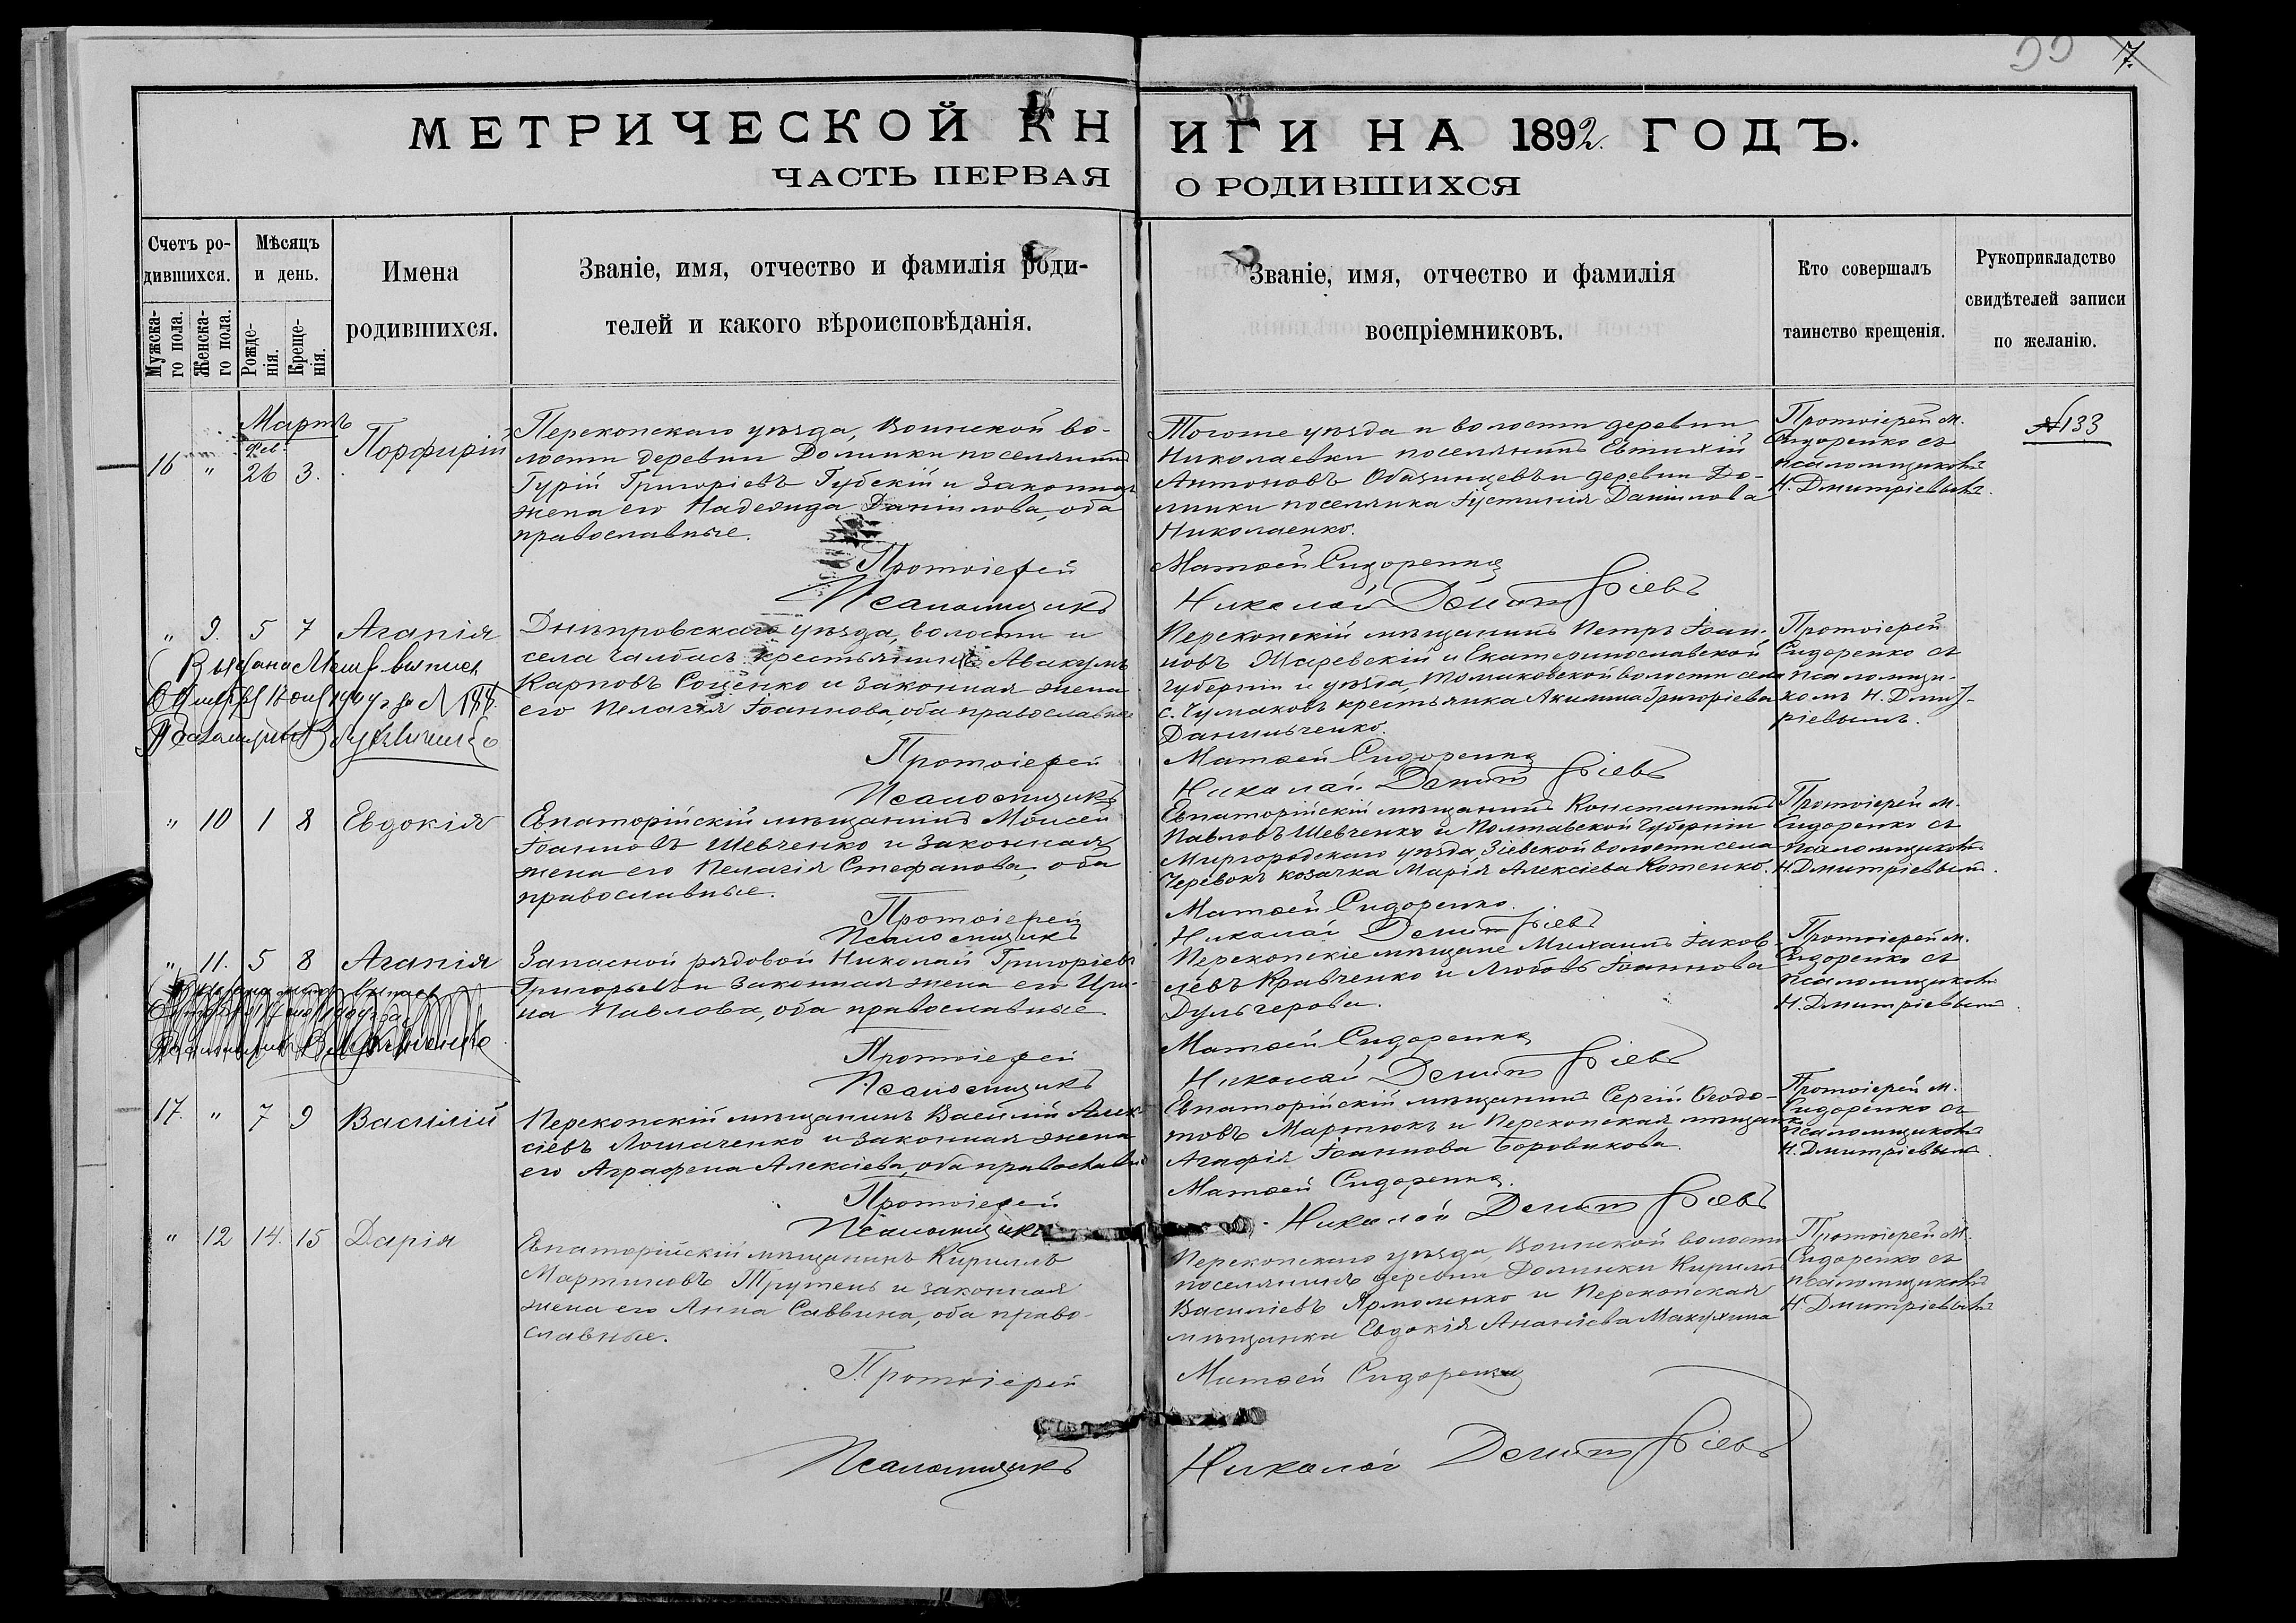 7.
МЕТРИЧЕСКОЙ КНИГИ НА 1892 ГОДЪ.
ЧАСТЬ ПЕРВАЯ О РОДИВШИХСЯ
Счетъ ро-
дившихся.
Мужска-
го пола.
Женска-
го пола.
Мѣсяцъ
и день.
Рожде-
нія.
Креще-
нія.
Имена
родившихся.
Званіе, имя, отчество и фамилія роди-
телей и какого вѣроисповѣданія.
Званіе, имя, отчество и фамилія
воспріемниковъ.
Кто совершалъ
таинство крещенія.
Рукоприкладство
свидѣтелей записи
по желанію.
Мартъ
Фев.
16 " 26 3. Порфирій
Перекопскаго уѣзда, Воинской во-
лости деревни Долинки поселянинъ
Гурій Григоріевъ Губскій и законная
жена его Надежда Даніилова, оба
православные.
Протоіерей
Псаломщикъ
Тогоже уѣзда и волости деревни
Николаевки поселянинъ Евтихій
Антоновъ и деревни До-
линки поселянка Іустинія Даніилова
Николаенко.
Матѳей Сидоренко
Николай Димитріевъ
Протоіерей М.
Сидоренко съ
псаломщикомъ
Н. Дмитріевымъ.
№133
" 9. 5 7 Агапія
Выдана Метр. выпись
Псаломщикъ
Днѣпровскаго уѣзда, волости и
села Чалбасъ крестьянинъ Авакумъ
Карповъ Роценко и законная жена
его Пелагія Іоаннова, оба православные
Протоіерей
Псаломщикъ
Перекопскій мѣщанинъ Петръ Іоан-
новъ Жаревскій и Екатеринославской
губерніи и уѣзда, Томаковской волости села
с. Чумаковъ крестьянка Акилина Григоріева
Данильченко.
Матѳей Сидоренко
Николай Димитріевъ
Протоіерей
Сидоренко съ
псаломщи-
комъ Н. Дмит-
ріевымъ.
" 10 1 8 Евдокія
Евпаторійскій мѣщанинъ Моисей
Іоанновъ Шевченко и законная
жена его Пелагія Стефанова, оба
православные.
Протоіерей
Псаломщикъ
Евпаторійскій мѣщанинъ Константинъ
Павловъ Шевченко и Полтавской губерніи
Миргородскаго уѣзда, Зіевской волости села
Черевокъ козачка Марія Алексіева Котенко.
Матѳей Сидоренко.
Николай Димитріевъ
Протоіерей М.
Сидоренко съ
псаломщикомъ
Н. Дмитріевымъ.
" 11. 5 8 Агапія
Запасной рядовой Николай Григоріевъ
Григорьевъ и законная жена его Ири-
на Павлова, оба православные.
Протоіерей
Псаломщикъ
Перекопскіе мѣщане Михаилъ Іаков-
левъ Кравченко и Любовь Іоаннова
Дульгерова.
Матѳей Сидоренко
Николай Димитріевъ
Протоіерей М.
Сидоренко съ
псаломщикомъ
Н. Дмитріевымъ.
17. " 7 9 Василій
Перекопскій мѣщанинъ Василій Алек-
сіевъ Ломаченко и законная жена
его Аграфена Алексіева, оба православные
Протоіерей
Псаломщикъ
Евпаторійскій мѣщанинъ Сергій Ѳеодо-
товъ Мартюкъ и Перекопская мѣщанка
Агафія Іоаннова Боровикова.
Матѳей Сидоренко.
Николай Димитріевъ
Протоіерей М.
Сидоренко съ
псаломщикомъ
Н. Дмитріевымъ.
" 12 14. 15 Дарія
Евпаторійскій мѣщанинъ Кириллъ
Мартиновъ Трутень и законная
жена его Анна Саввина, оба право-
славные.
Протоіерей
Псаломщикъ
Перекопскаго уѣзда, Воинской волости
поселянинъ деревни Долинки Кириллъ
Василіевъ Ярмоленко и Перекопская
мѣщанка Евдокія Ананіева Макухина
Матѳей Сидоренко
Николай Димитріевъ
Протоіерей М.
Сидоренко съ
псаломщикомъ
Н. Дмитріевымъ